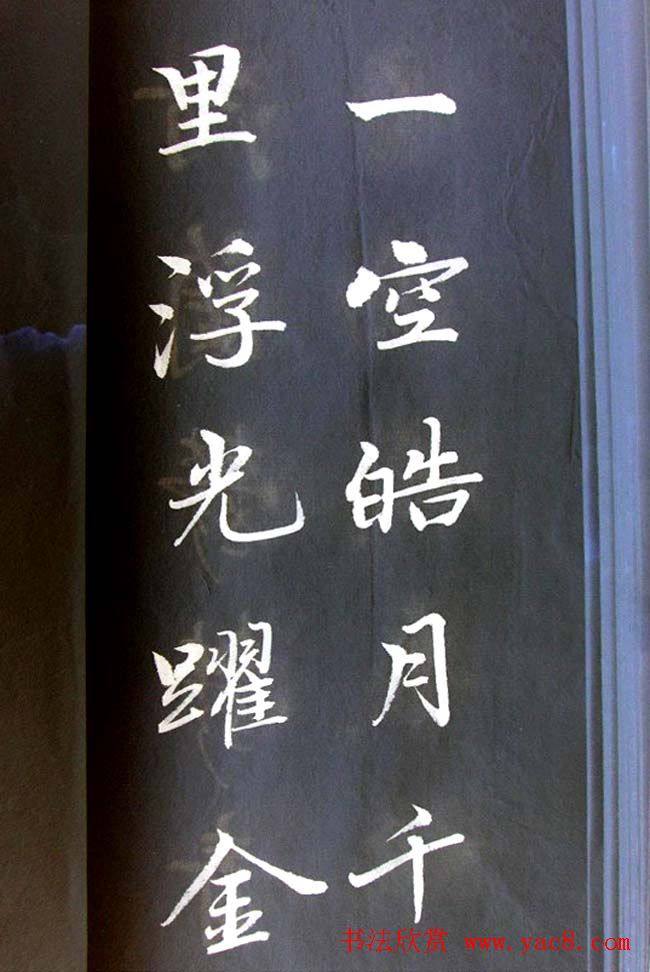 一空皓月千
里浮光躍金
书法欣赏 www.yac8.com